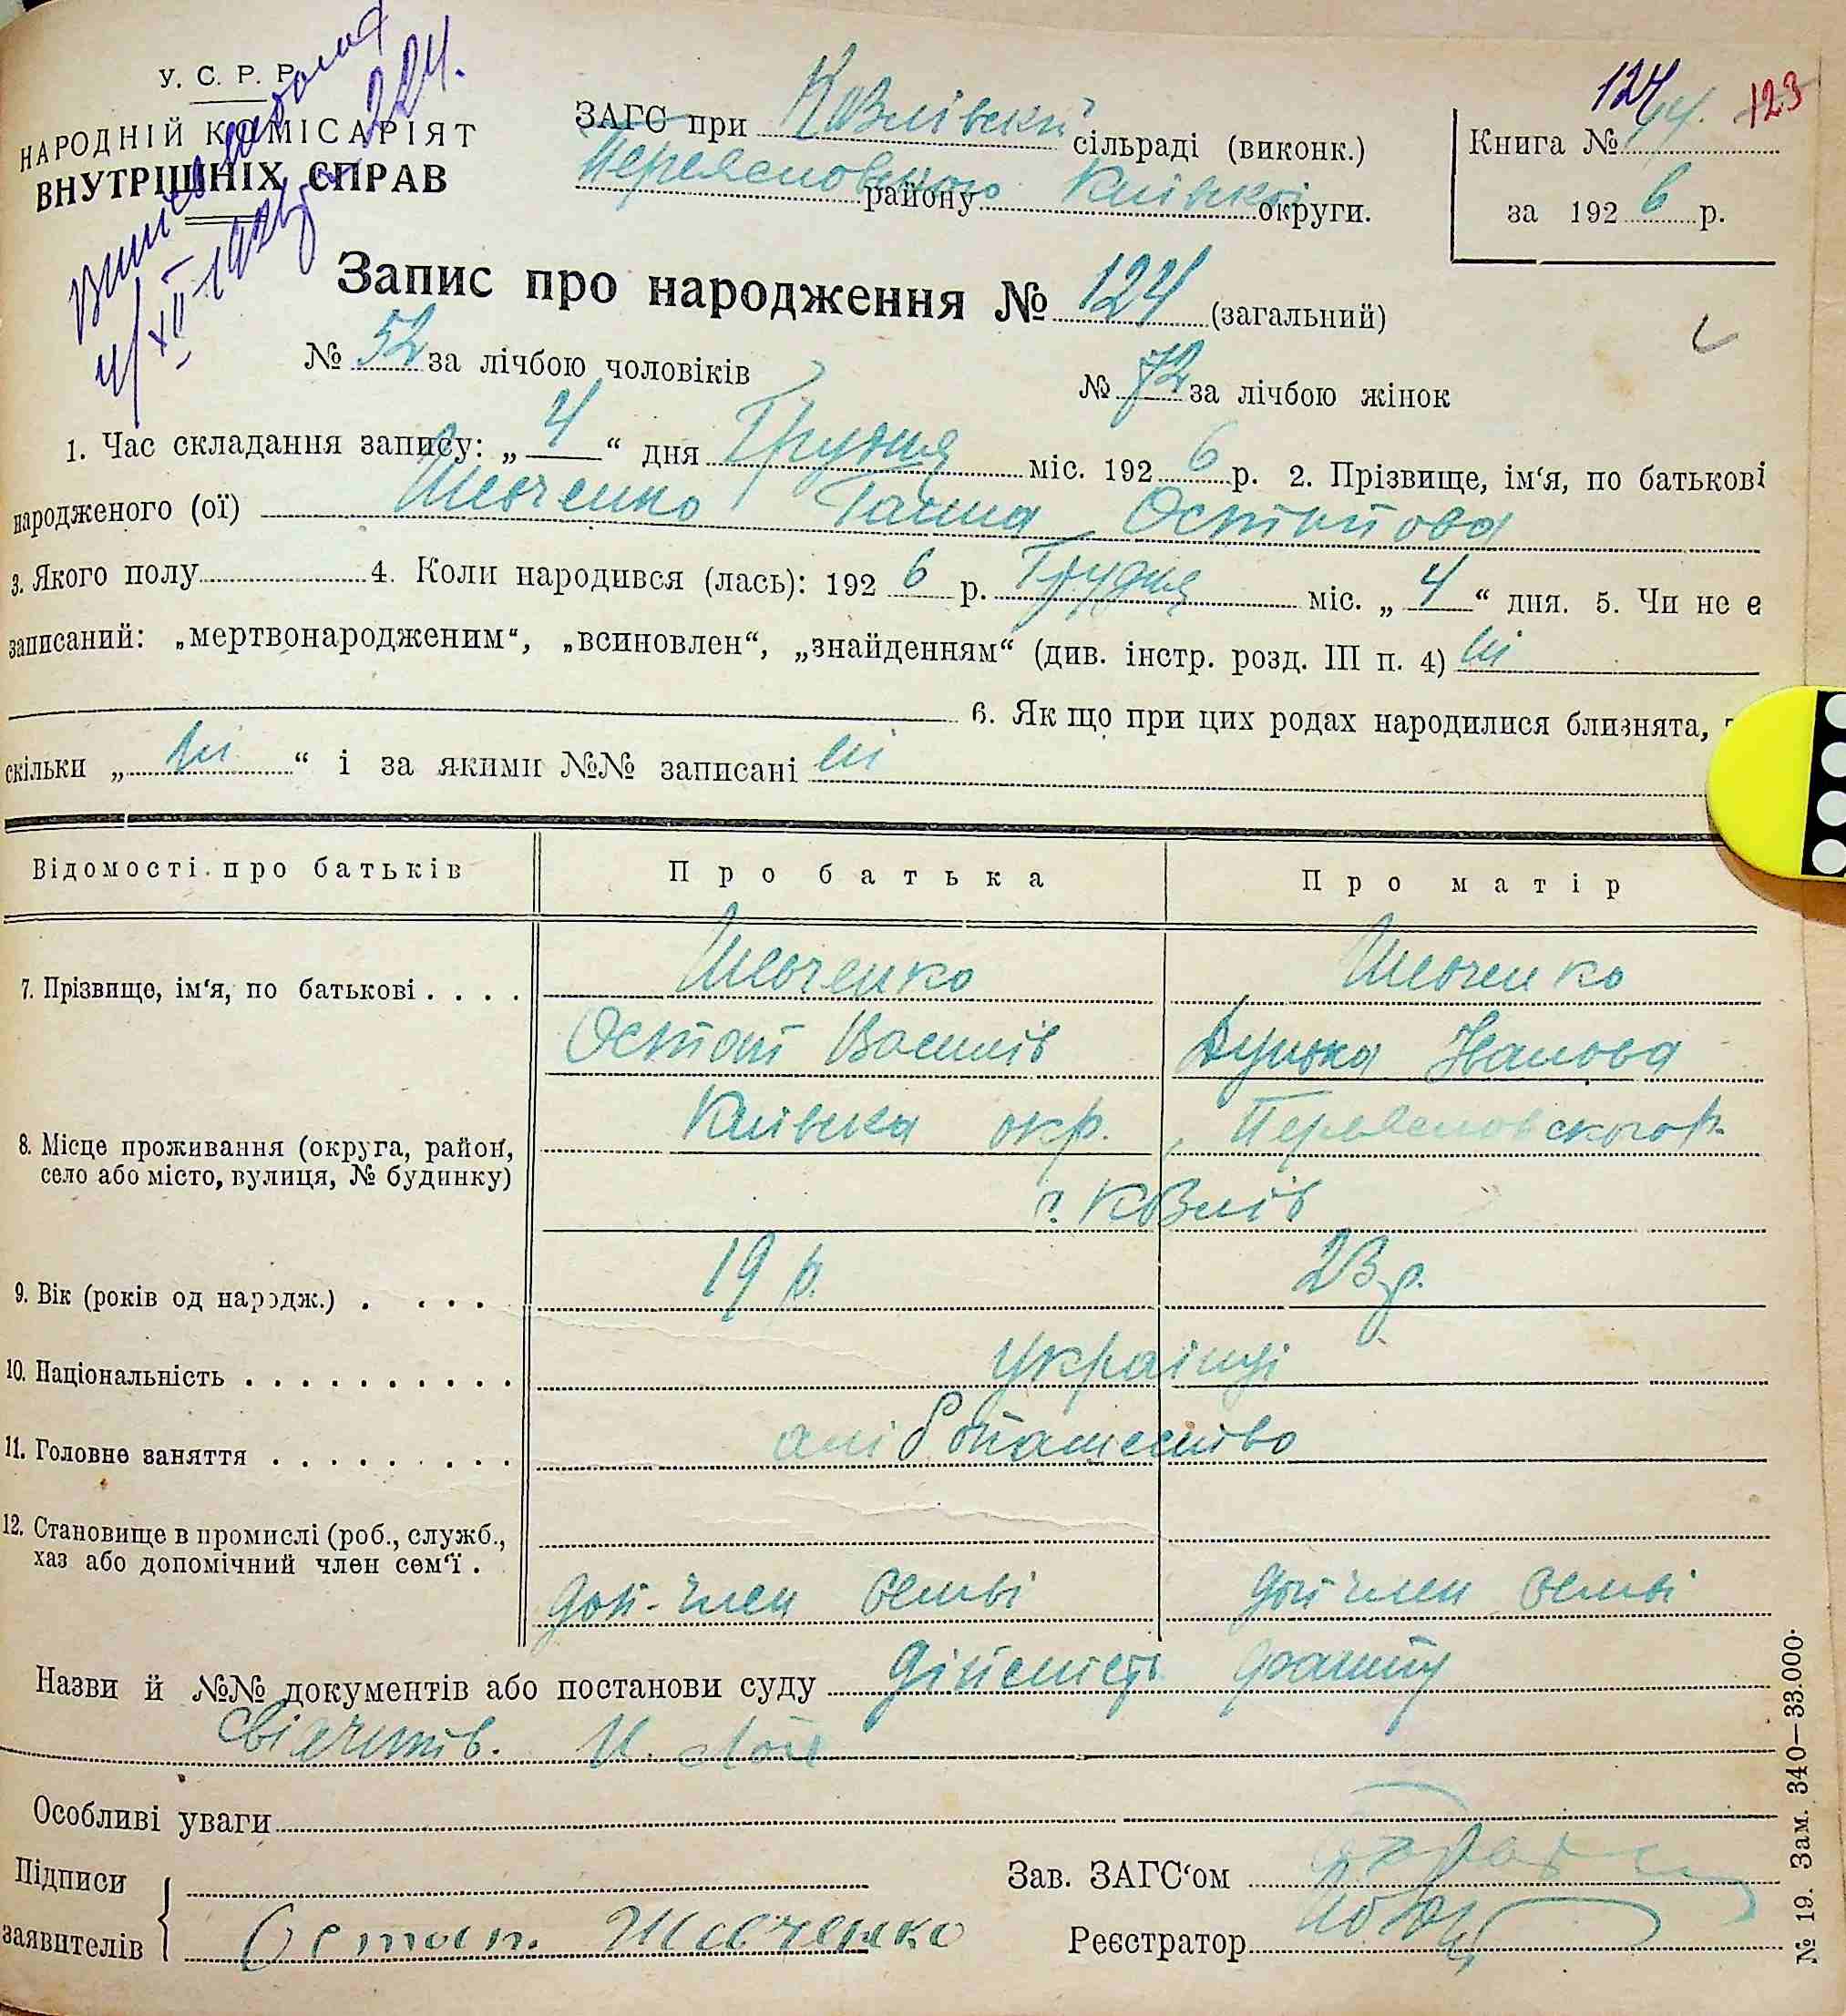 У. С. Р. Р.
НАРОДНІЙ КОМІСАРІЯТ
ВНУТРІШНІХ СПРАВ
224.
ЗАГС при Ковлівскій сільраді (виконк.)
Переяславского району Київскої округи.
124 123
Книга №
за 1926 р.
Запис про народження № 124 (загальний)
№ 52 за лічбою чоловіків № 72 за лічбою жінок
1. Час складання запису: „4“ дня Грудня міс. 1926 р. 2. Прізвище, ім‘я, по батькові
народженого (ої) Шевченко Ганна Остапова
3. Якого полу 4. Коли народився (лась): 1926 р. Грудня міс. „4“ дня. 5. Чи не є
записаний: „мертвонародженим“, „всиновлен“, „знайденням“ (див. інстр. розд. III п. 4) ні
6. Як що при цих родах народилися близнята,
скільки „ні“ і за якими №№ записані ні
Відомості про батьків Про батька Про матір
7. Прізвище, ім‘я, по батькові . . . . Шевченко Шевченко
Остап Василів Дунька Іванова
8. Місце проживання (округа, район, Київска окр., Переяславского р.
село або місто, вулиця, № будинку)
с. Ковлів
9. Вік (років од народж.) . . . . 19 р. 23 р.
10. Національність . . . . . . . . . . українці
11. Головне заняття . . . . . . . . . хліборопашество
12. Становище в промислі (роб., служб.,
хаз або допомічний член сем‘ї .
доп-член семьї доп член семьї
Назви й №№ документів або постанови суду дійсність факту
свідчив.
Особливі уваги
Підписи
заявителів Остап. Шевченко
Зав. ЗАГС‘ом
Реєстратор
№ 19. Зам. 340—33.000.